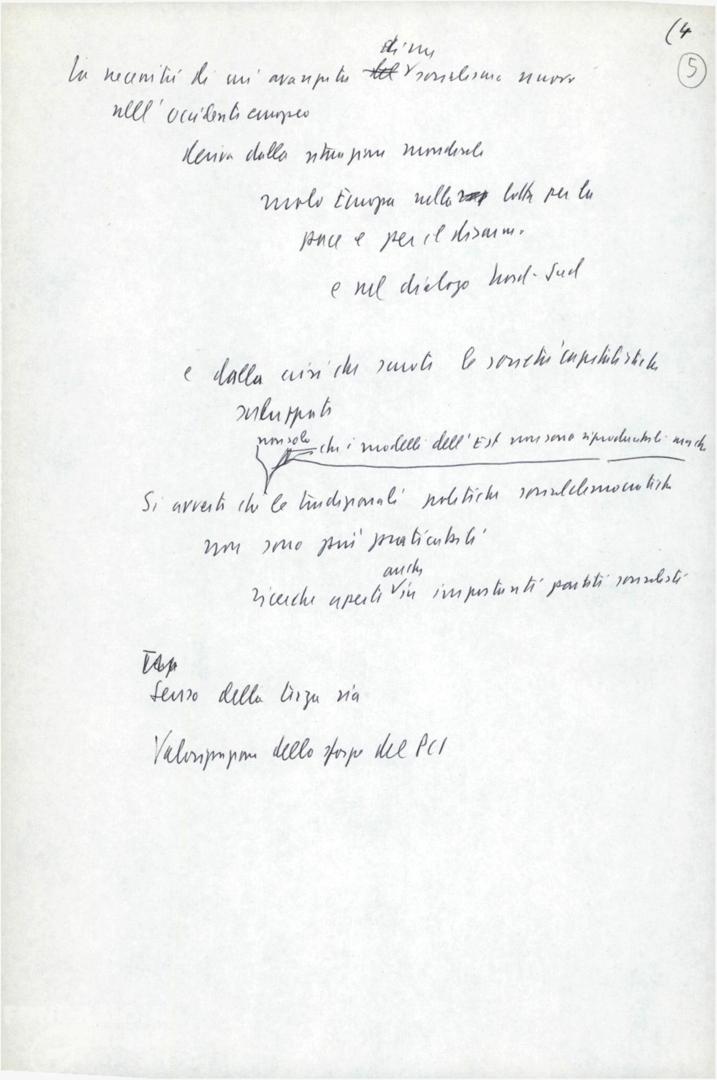 (4
5
La necessità di un'avanzata di un socialismo nuovo
nell'occidente europeo
deriva dalla situazione mondiale
ruolo Europa nella lotta per la
pace e per il disarmo
e nel dialogo Nord-Sud
e dalla crisi che scuote le società capitalistiche
sviluppate
non solo che i modelli dell'Est non sono riproducibili ma che
Si avverte che le tradizionali politiche socialdemocratiche
non sono più praticabili
anche
ricerche aperte in importanti partiti socialisti
Senso della terza via
Valorizzazione dello sforzo del PCI